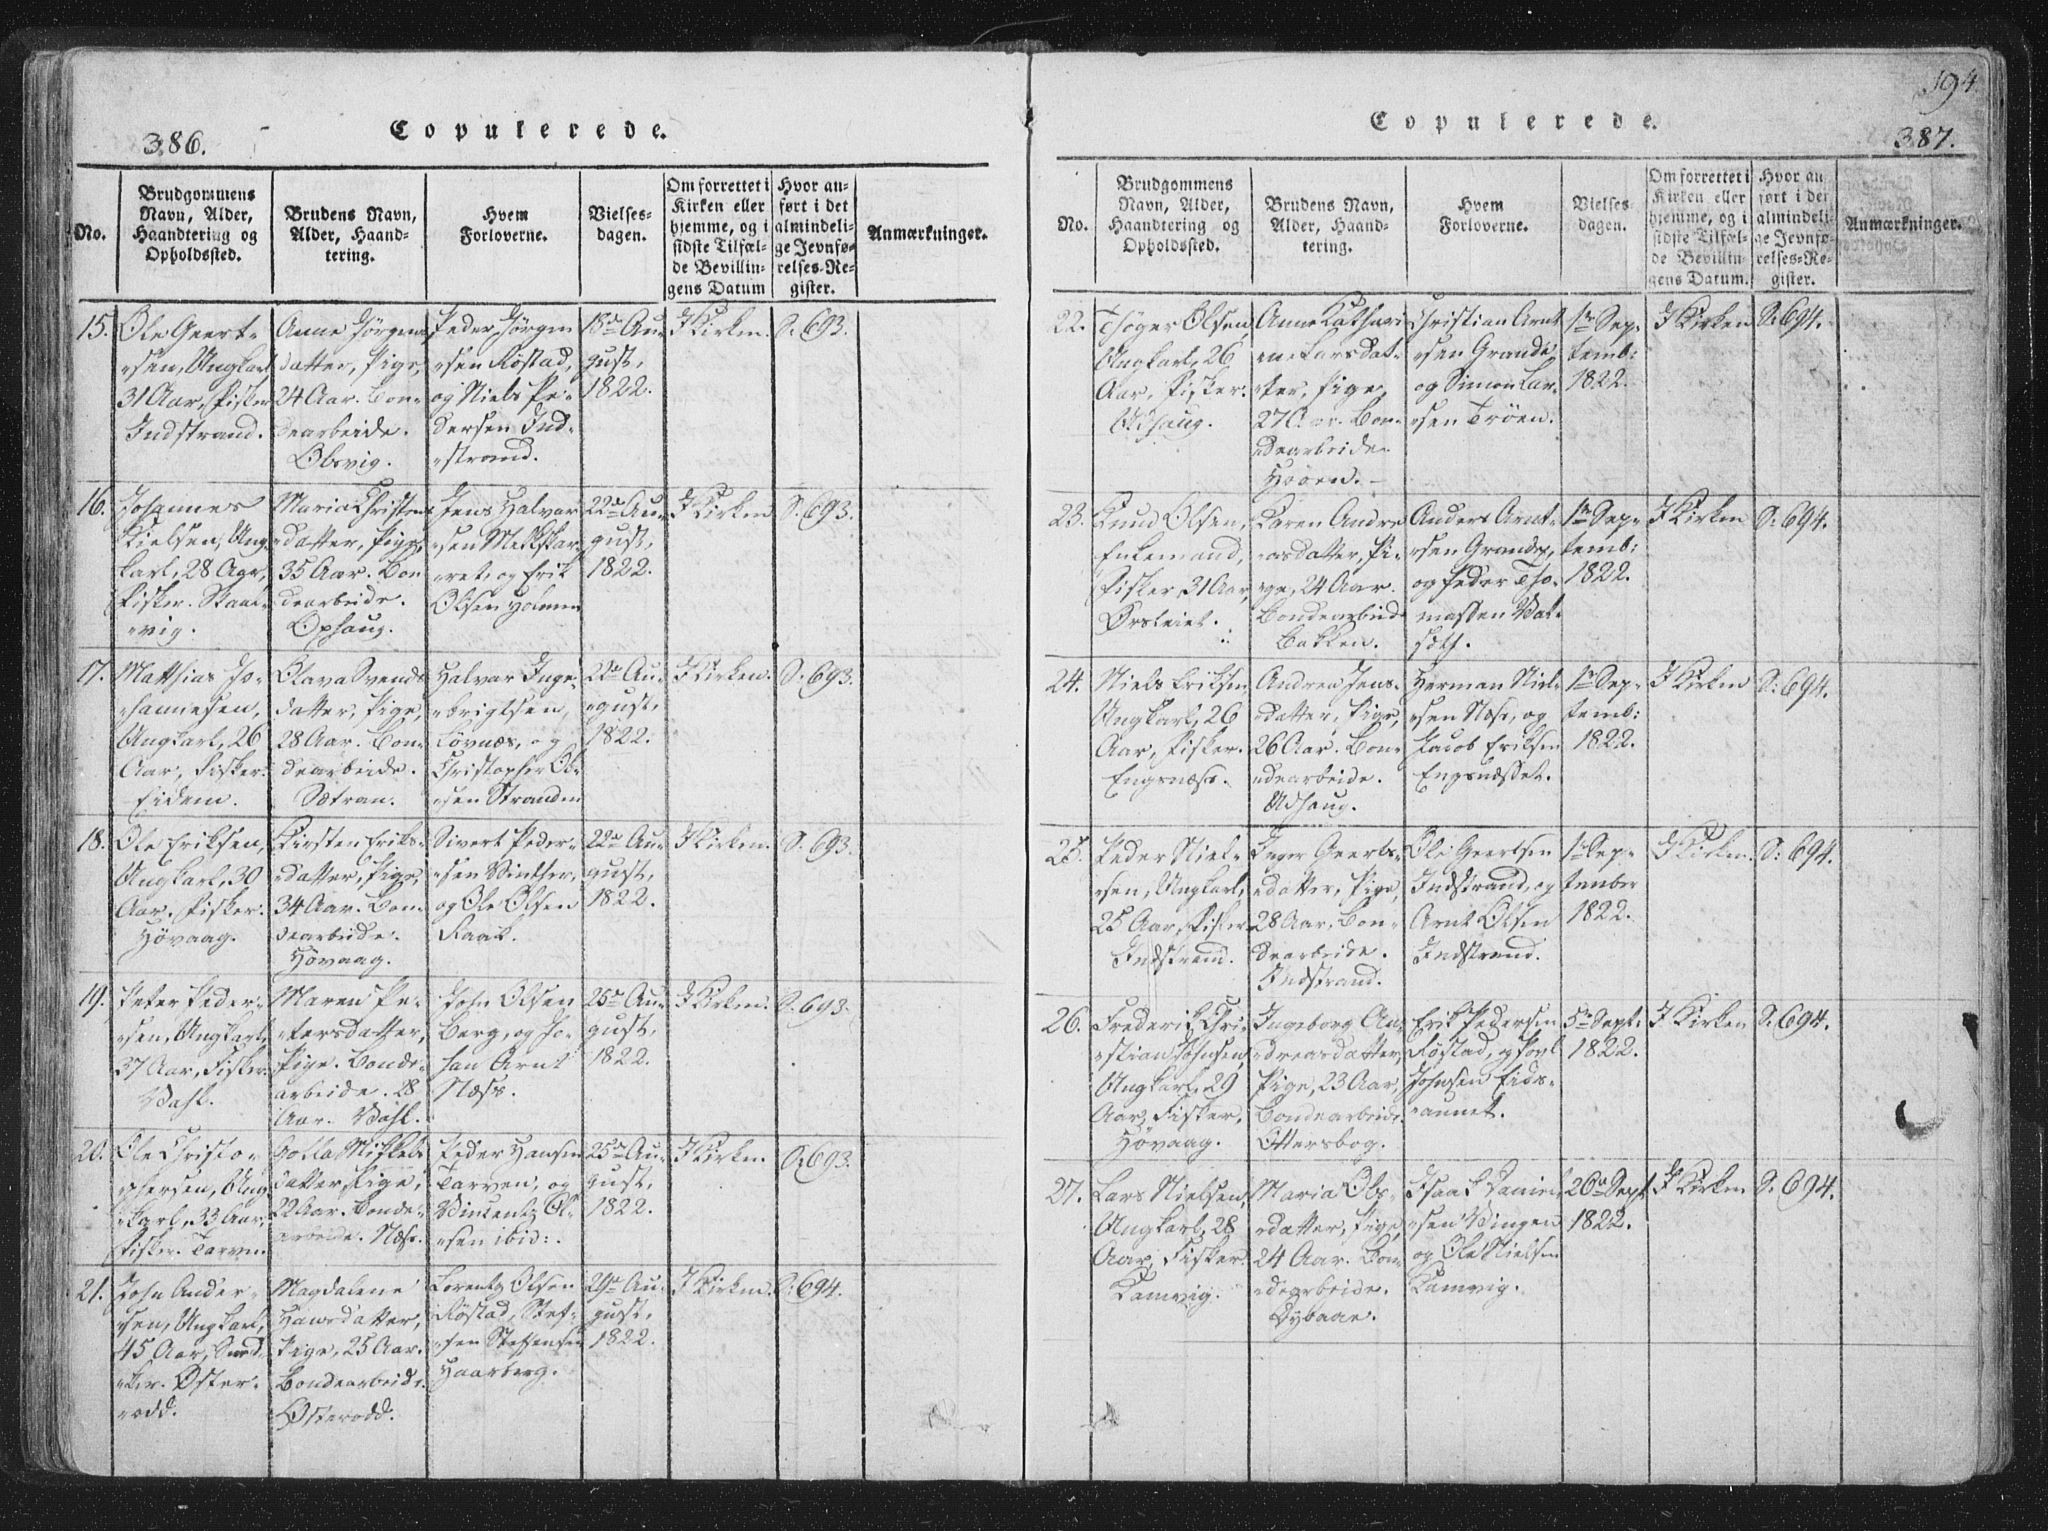 386.
Copulerede.
No.
Brudgommens Navn, Alder, Haandtering og Opholdssted.
Brudens Navn, Alder, Haandtering.
Hvem Forloverne.
Vielses-dagen.
Om forrettet i Kirken eller hjemme, og i sidste Tilfælde Bevillingens Datum
Hvor anført i det almindelige Jevnførelses-Register.
Anmærkninger.
15.
Ole Geert-
"sen, Ungkarl
31 Aar, Fisker
Indstrand.
Anne Jörgens
datter, Pige,
24 Aar. Bon-
dearbeide.
Olsvig.
Peder Jörgen
"sen Röstad,
og Niels Pe-
dersen Ind-
"strand.
18de Au-
gust,
1822.
I Kirken.
S. 693.
16.
Johannes
Nielsen, Ung-
karl, 28 Aar,
Fisker.
"vig.
Maria Christens
"datter, Pige,
35 Aar. Bon
dearbeide.
Ophaug.
Jens Halvor
"sen
"ret, og Erik
Olsen
22de Au-
gust,
1822.
I Kirken
S. 693.
17.
Matthias Jo-
"hannesen,
Ungkarl, 26
Aar, Fisker.
Eidem.
Olava Svends
datter, Pige,
28 Aar. Bon-
dearbeide.
Sætran.
Halvor Inge-
"brigtsen,
Lövnæs, og
Christopher Ol-
"sen Stranden
22de Au-
"gust,
1822.
I Kirken.
S. 693.
18.
Ole Eriksen,
Ungkarl, 30
Aar. Fisker.
Hövaag.
Kirsten Eriks-
"datter, Pige,
34 Aar. Bon
dearbeide.
Hövaag.
Sivert Peder-
"sen Vinther,
og Ole Olsen
Raak.
22de Au-
gust,
1822.
I Kirken.
S. 693.
19.
Peter Peder-
"sen, Ungkarl,
37 Aar, Fisker.
Vahl.
Maren Pe-
"tersdatter,
Pige. Bonde-
arbeide. 28
Aar. Vahl.
John Olsen
Berg, og Jo-
han Arnt
Næss.
25de Au-
gust,
1822.
I Kirken.
S. 693.
20.
Ole Christo-
phersen, Ung
"karl, 33 Aar,
Fisker. Tarven.
Golla Mikkels
datter Pige,
22 Aar. Bonde-
arbeide. Næss.
Peder Hansen
Tarven, og
Vincentz Ol-
"sen ibid:.
25de Au-
gust,
1822.
I Kirken.
S. 693.
21.
John Ander-
"sen, Ungkarl,
45 Aar,
Öster-
"odd.
Magdalene
Hansdatter,
Pige, 25 Aar.
Bondearbeide.
Österodd.
Lorentz Olsen
Röstad, Stef-
"fen Steffensen
Haarberg.
29de Au-
gust,
1822.
I Kirken.
S. 694.
194
Copulerede.
387.
No.
Brudgommens Navn, Alder, Haandtering og Opholdssted.
Brudens Navn, Alder, Haandtering.
Hvem Forloverne.
Vielses dagen.
Om forrettet i Kirken eller hjemme, og i sidste Tilfælde Bevillingens Datum.
Hvor anført i det almindelige Jevnførelses-Register.
Anmærkninger.
22.
Thöger Olsen
Ungkarl, 26
Aar, Fisker.
Udhaug.
Anne Kathari
ene Larsdat-
"ter, Pige,
27 Aar. Bon-
"dearbeide
Hööen.
Christian Arnt
"sen Grande,
og Simon Lar-
"sen Tröen.
1ste Sep-
temb:
1822.
I Kirken
S. 694.
23.
Knud Olsen,
Enkemand,
Fisker, 31 Aar,
Örsleiet.
Karen Andre
"asdatter, Pi-
"ge, 24 Aar.
Bondearbeide
Bakken.
Anders Arnt-
"sen Grande,
og Peder Tho-
massen Vat-
"seth.
1ste Sep-
temb:
1822.
I Kirken
S. 694.
24.
Niels Eriksen
Ungkarl, 26
Aar, Fisker.
Engsnæss.
Andrea Jens-
"datter, Pige,
26 Aar. Bon-
"dearbeide.
Udhaug.
Herman Niel-
"sen Næss, og
Jacob Eriksen
Engsnæsset.
1ste Sep-
temb:
1822.
I Kirken
S. 694.
25.
Peder Niel-
"sen, Ungkarl,
25 Aar, Fisker
Indstrand.
Inger Geerts-
"datter, Pige,
28 Aar. Bon-
dearbeide.
Indstrand.
Ole Geertsen
Indstrand, og
Arnt Olsen
Indstrand.
1ste Sep-
tember
1822.
I Kirken.
S. 694.
26.
Frederik Chri-
"stian Johnsen,
Ungkarl, 29
Aar, Fisker,
Hövaag.
Ingeborg An-
"dreasdatter,
Pige, 23 Aar,
Bondearbeide.
Ottersbog.
Erik Pedersen
Röstad, og Povl
Johnsen Eids-
"aunet.
5te Sept:
1822.
I Kirken
S. 694.
27.
Lars Nielsen,
Ungkarl, 28
Aar, Fisker.
Kamvig.
Maria Ols-
"datter, Pige,
24 Aar. Bon
"dearbeide.
Dybaae.
Isaak Daniel
"sen Vingen
og Ole Nielsen
Kamvig.
26de Sept
1822.
I Kirken
S. 694.